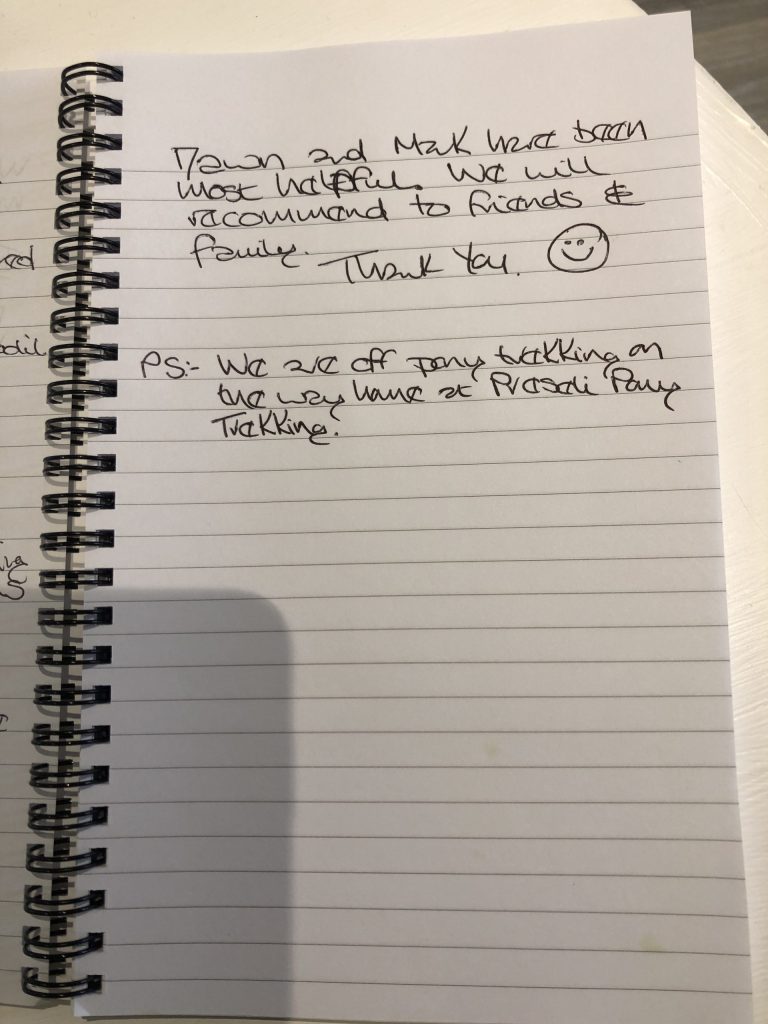 Dawn and Mark have been
most helpful. We will
recommend to friends &
family. Thank You.
PS:- We are off pony trekking on
the way home at Preseli Pony
Trekking.